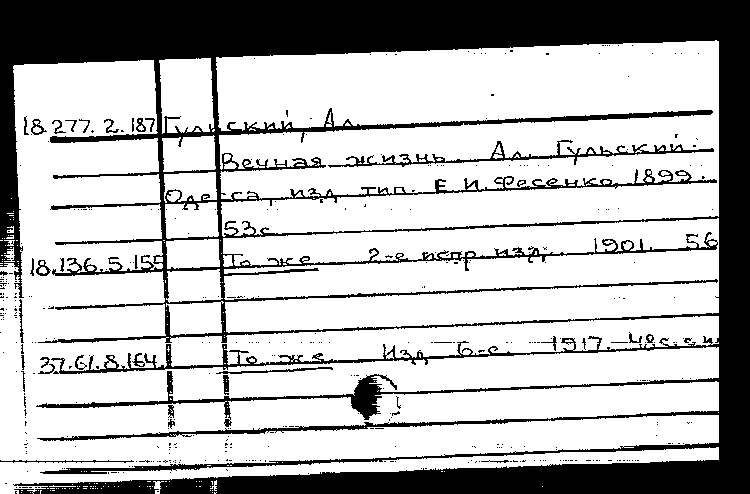 18.277.2.187 Гульский, Ал.
Вечная жизнь. Ал. Гульский.
Одесса, изд. тип. Е.И. Фесенко, 1899.
53с.
18.136.5.155. То же. 2-е испр. изд. 1901. 56
37.61.8.164. То же. Изд. 6-е. 1917. 48с. с и